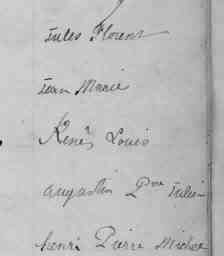 Jules Florent
Jean Marie
René Louis
augustin Pre Julien
henri Pierre Michel